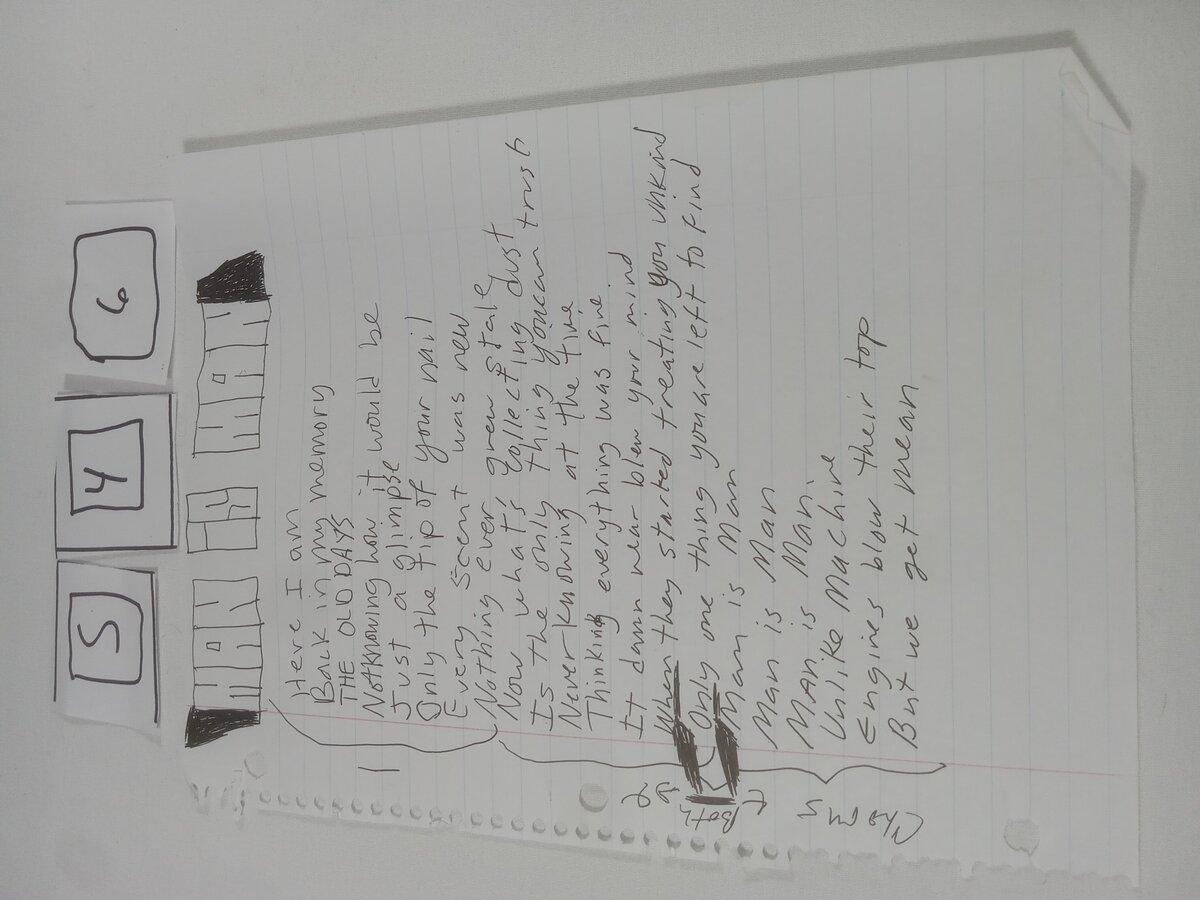 5 4 6
MAN IS MAN
Here I am
Back in my memory
THE OLD DAYS
Not knowing how it would be
1
Just a glimpse
Only the tip of your nail
Every Scent was new
Nothing ever grew stale
Now whats collecting dust
Is the only thing you can trust
Never knowing at the time
Thinking everything was fine.
It damn near blew your mind
2
When they started treating you unkind
Only one thing you are left to find
Both
Man is Man
Man is Man
MAN is Man.
Unlike Machine
Chorus
Engines blow their top
But we get mean